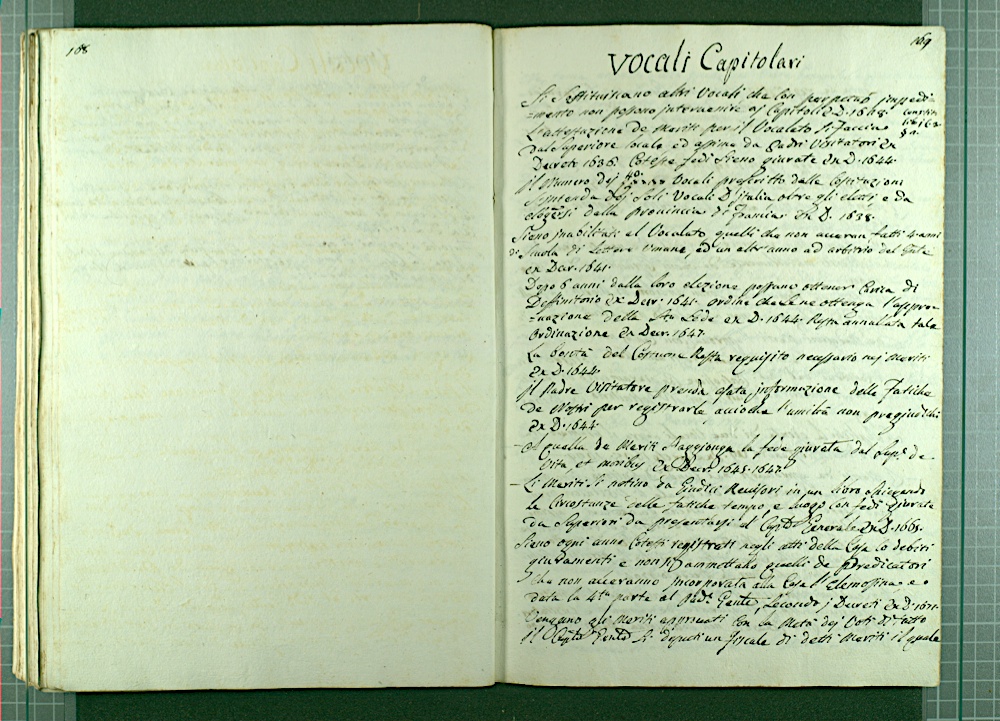 168
169
Vocali Capitolari
Si sostituiscano altri Vocali che con perpetuo impedi-
-mento non possono intervenire aj Capitoli ex D. 1668.
L'attestazione de Meriti per il Vocalato si faccia
dal Superiore locale ed a Padri Visitatori ex
Decreto 1636. Coteste fedi sieno giurate ex D. 1644.
Il Numero dej 40 Vocali prescritto dalle Costituzioni
s'intenda dej soli Vocali d'Italia oltre gli eletti e da
eleggersi della provincia di ex D. 1638.
Sieno inabilitati al Vocalato quelli che non averan fatti 4 anni
di Scuola di Lettere Umane, ed un altr'anno ad arbitrio del Gnle
ex Decr. 1641.
Dopo 6 anni dalla loro elezione possano ottener carica di
Deffinitorio ex Decr. 1641. ordine che se ne ottenga l'appro-
-vazione della Sta Sede ex D. 1644. Resta annullata tale
Ordinazione ex Decr. 1647.
La bontà del Costume Resta requisito necessario nej Meriti
ex D. 1644.
Il Padre Visitatore prenda esata informazione delle fatiche
de Nostri per registrarle acciochè l'umiltà non pregiudichi
ex D. 1644.
- A quella de Meriti s'aggionga la fede giurata dal Supre de
Vita, et moribus ex Decr. 1645. 1647.
- Li Meriti si notino da Giudici Revisori in un libro
le Circostanze delle fatiche tempo, e luogo con fedi giurate
da Superiori da presentarsi al Caplo Generale ex D. 1665.
Sieno ogni anno Cotesti registrati negli atti della Casa co debiti
giuramenti e non si ammettano quelli de Predicatori
che non averanno incorporata alla Casa l'Elemosina e
data la 4ta parte al Pade Gente, secondo j Decreti ex D.
Vengano gli Meriti approvati con la Metà dej Voti
Il Caplo Genle si deputi un fiscale di detti Meriti il quale